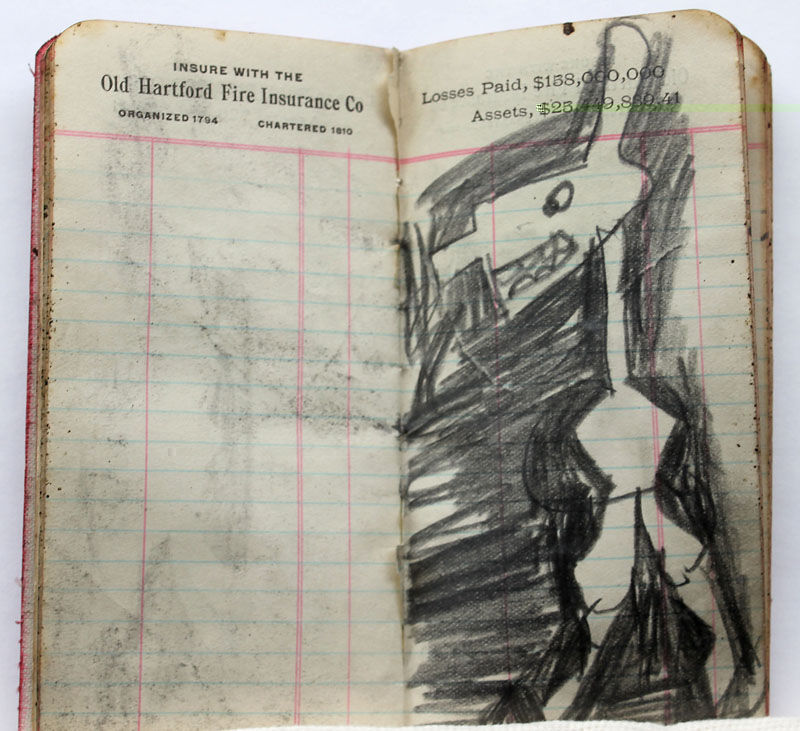 INSURE WITH THE
Old Hartford Fire Insurance Co
ORGANIZED 1794 CHARTERED 1810
Losses Paid, $158,000,000
Assets, $25,449,859.41